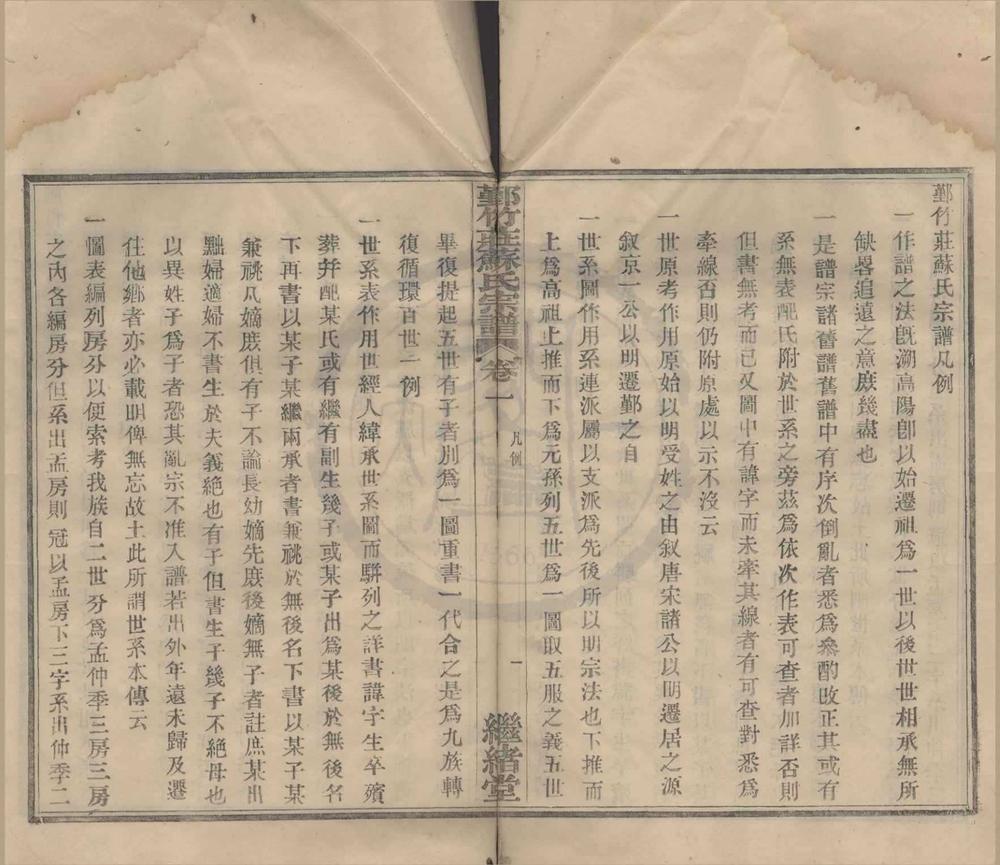 鄞竹莊蘇氏宗譜凡例
一作譜之法旣溯高陽卽以始遷祖爲一世以後世世相承無所
缺畧追遠之意庶幾盡也
一是譜宗諸舊譜舊譜中有序次倒亂者悉爲叅酌改正其或有
系無表配氏附於世系之旁茲爲依次作表可查者加詳否則
但書無考而已又圖中有諱字而未牽其線者有可查對悉爲
牽線否則仍附原處以示不沒云
一世原考作用原始以明受姓之由叙唐宋諸公以明遷居之源
叙京一公以明遷鄞之自
一世系圖作用系連派屬以支派爲先後所以明宗法也下推而
上爲高祖上推而下爲元孫列五世爲一圖取五服之義五世
鄞竹莊蘇氏宗譜 卷一
凡例
一
繼緒堂
畢復提起五世有子者別爲一圖重書一代合之是爲九族轉
復循環百世一例
一世系表作用世經人緯承世系圖而駢列之詳書諱字生卒殯
葬幷配某氏或有繼有副生幾子或某子出爲某後於無後名
下再書以某子某繼兩承者書兼祧於無後名下書以某子某
兼祧凡嫡庶俱有子不論長幼嫡先庶後嫡無子者註庶某出
黜婦適婦不書生於夫義絶也有子但書生子幾子不絕母也
以異姓子爲子者恐其亂宗不准入譜若出外年遠未歸及遷
往他鄉者亦必載明俾無忘故土此所謂世系本傳云
一圖表編列房分以便索考我族自二世分爲孟仲季三房三房
之內各編房分但系出孟房則冠以孟房下三字系出仲季二